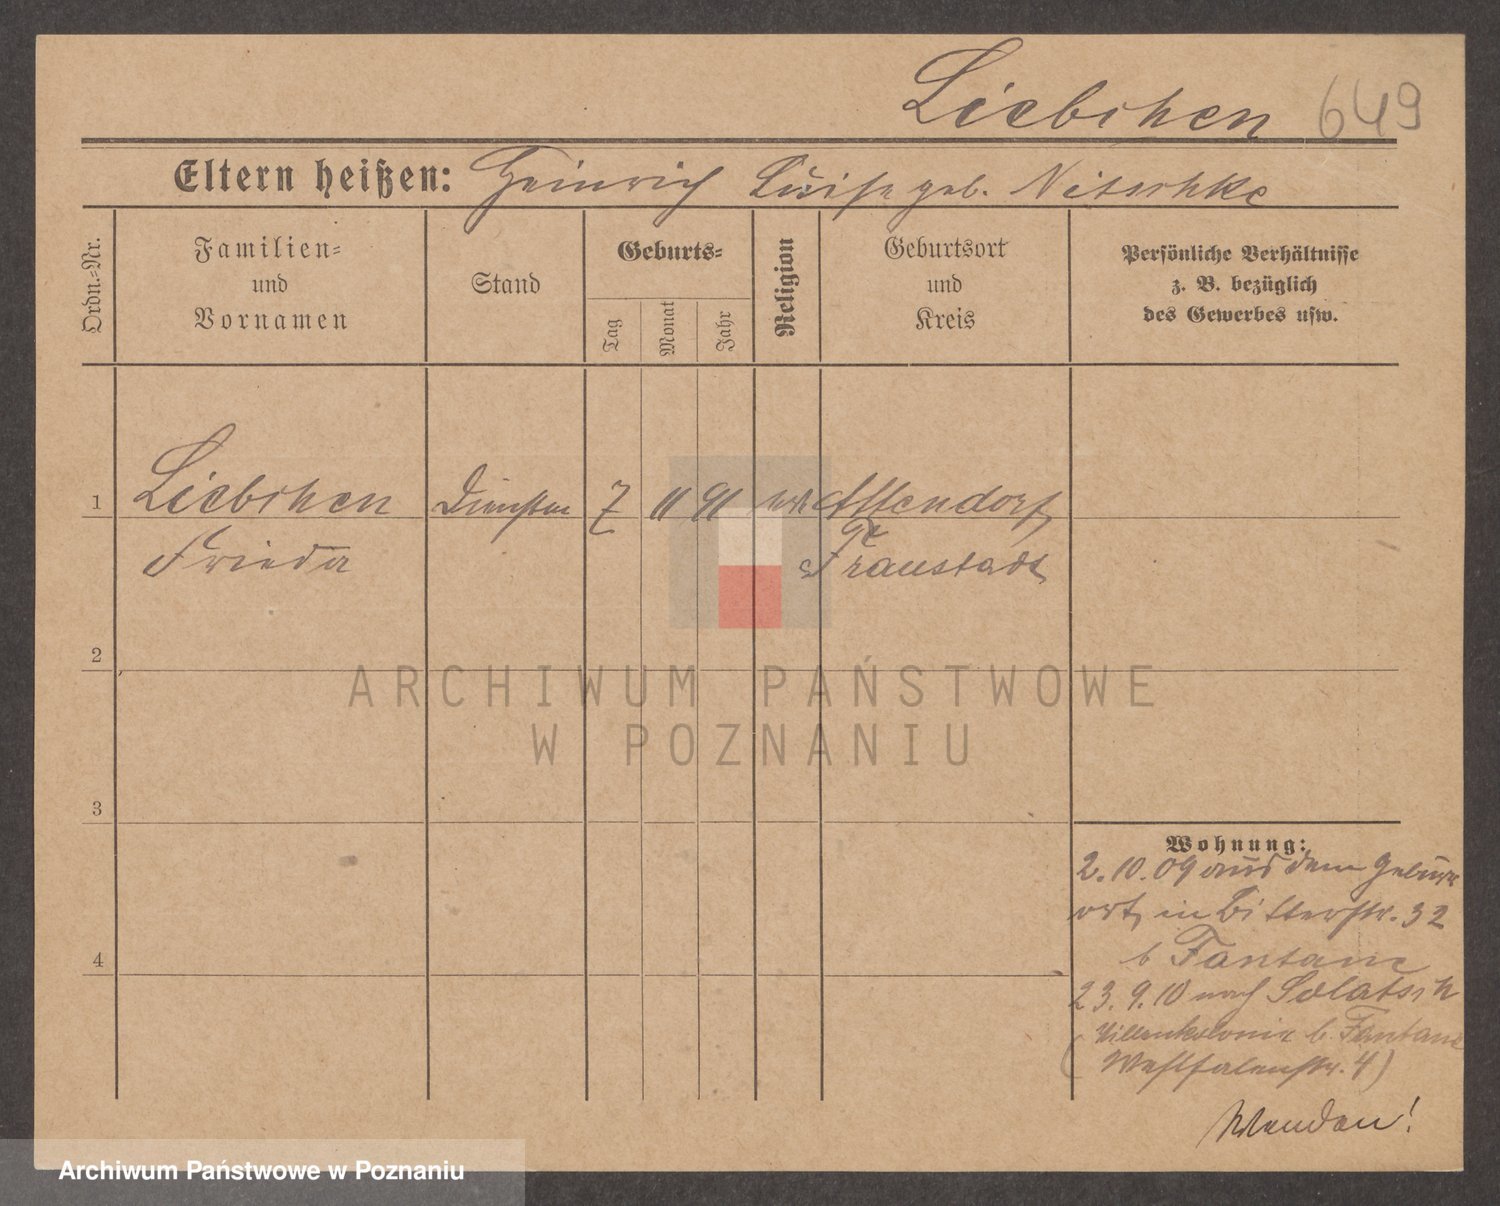 Liebchen 649
Eltern heißen: Heinrich Luise geb. Nitschke
Ordn.=Nr.
Familien=
und
Vornamen
Stand
Geburts=
Tag
Monat
Jahr
Religion
Geburtsort
und
Kreis
Persönliche Verhältnisse
z. B. bezüglich
des Gewerbes usw.
1 Liebchen 7 11 91 Attendorf
Frieda Fraustadt
2
ARCHIWUM PAŃSTWOWE
W POZNANIU
3
Wohnung:
2.10.09 aus dem Geburts
ort, in Bitterstr. 32
b Fontane
23.9.10 nach Solatsch
(Villenkolonie b. Fontane
Westfalenstr. 4)
4
Wenden!
Archiwum Państwowe w Poznaniu